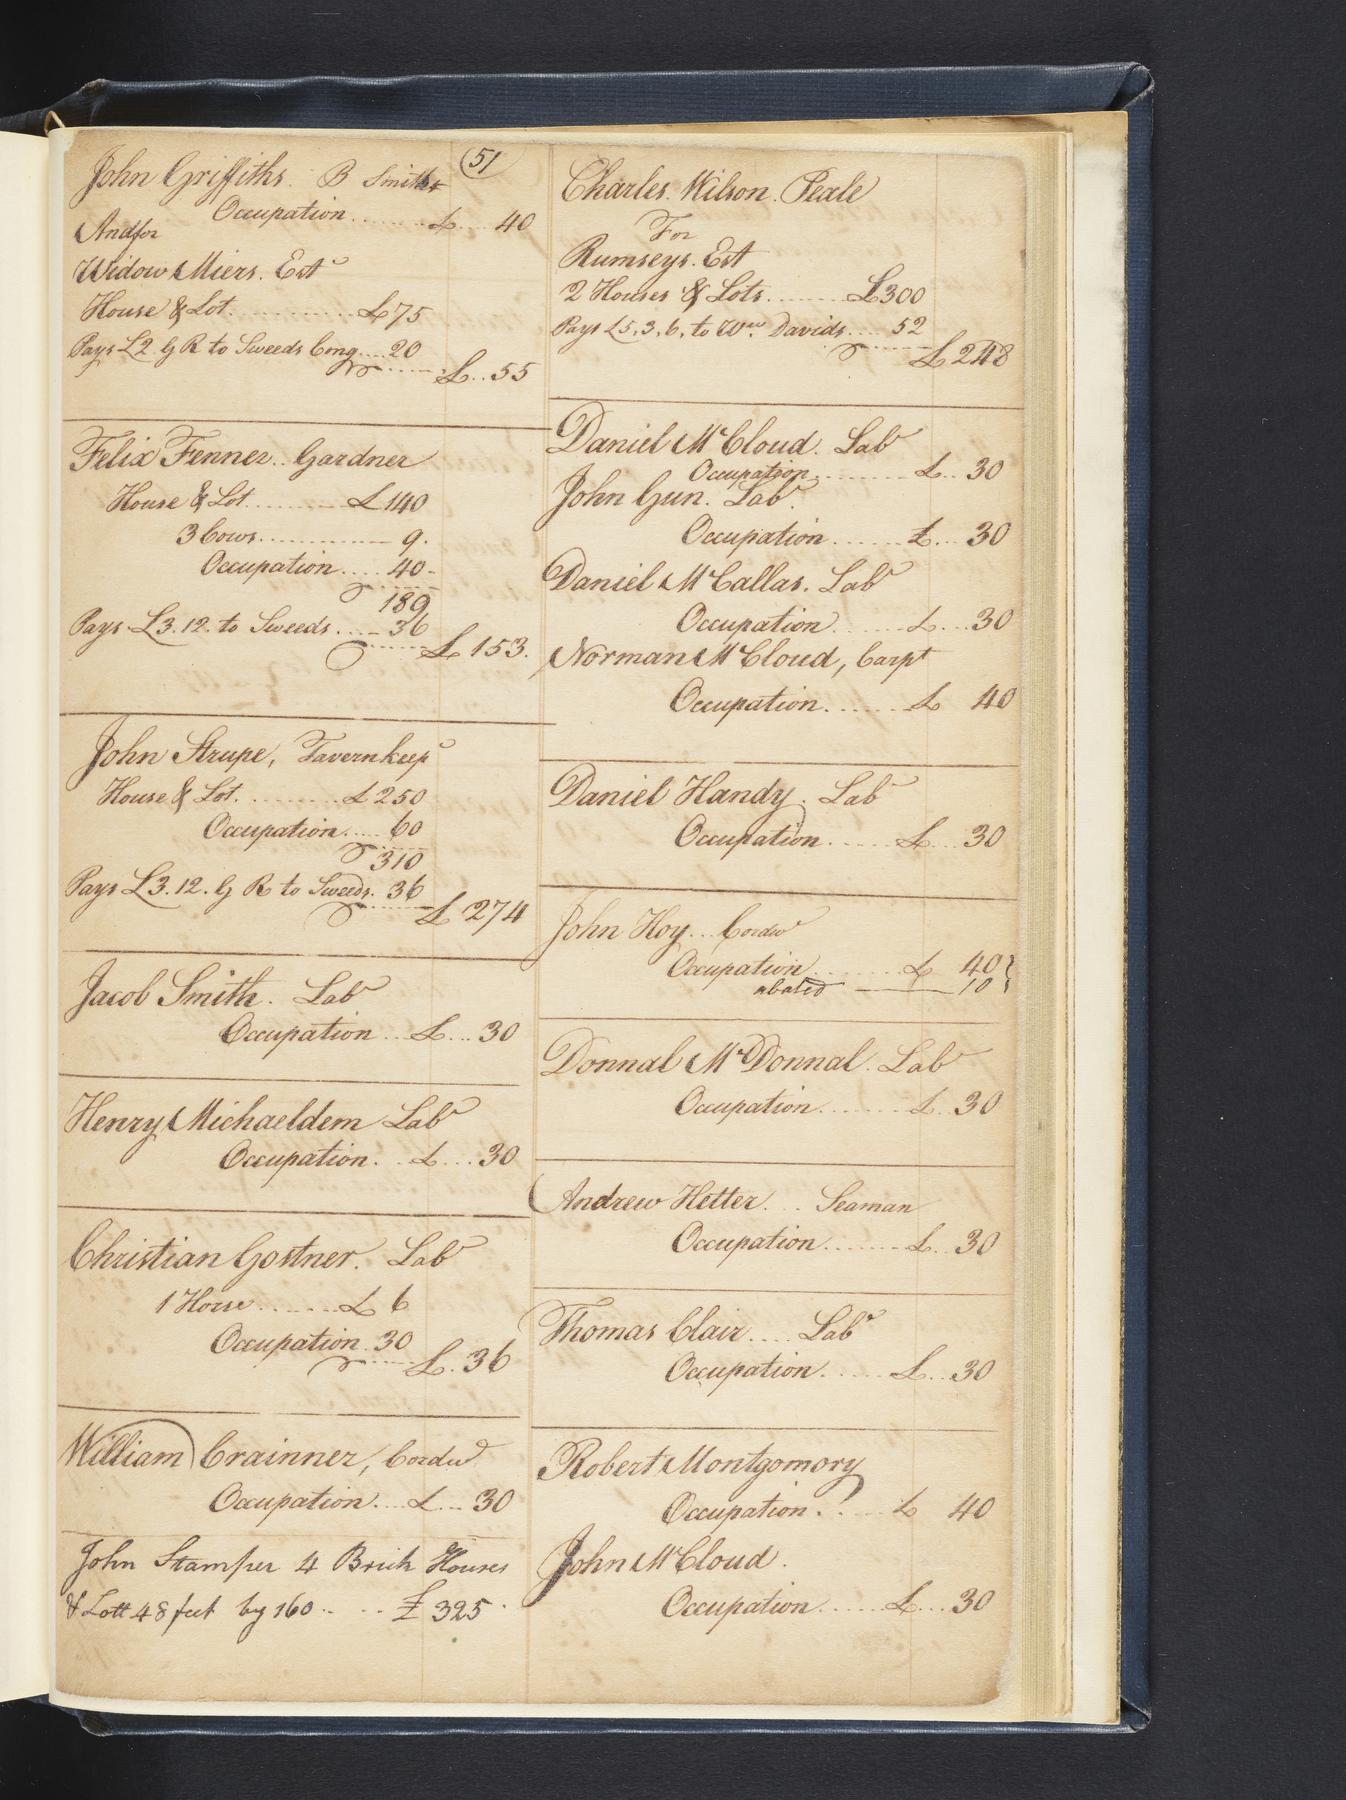 51
John Griffiths. B Smith
Occupation ........ £.. 40
And for
Widow Miers. Estr
House & Lot. ............ £75
Pays £2. G R to Sweeds Cong....20
£..55
Felix Fenner.. Gardner
House & Lot.......... £140
3 Cows............... 9.
Occupation.... 40-
189
Pays £3.12. to Sweeds....36
£ 153.
John Strupe, Tavernkeepr
House & Lot. ......... £250
Occupation..... 60
310
Pays £3.12. G R to Sweeds. 36
£ 274
Jacob Smith. Labr
Occupation... £... 30
Henry Michaeldem Labr
Occupation. .. £.... 30
Christian Gostner. Labr
1 Horse....... £ 6
Occupation. 30
£. 36
William Crainner, Cordwr
Occupation.... £.... 30
John Stamper 4 Brick Houses
& Lott 48 feet by 160.. .. £ 325.
Charles. Wilson. Peale
For
Rumseys. Est
2 Houses & Lots. ....... £300
Pays £5.3.6, to Wm. Davids.... 52
£248
Daniel McCloud. Labr
Occupation.......... £.. 30
John Gun. Labr.
Occupation ...... £... 30
Daniel McCallas. Labr
Occupation........ £.... 30
Norman McCloud, Carpt
Occupation. ....... £ 40
Daniel Handy. Labr
Occupation. ..... £... 30
John Hoy... Cordwr
Occupation......... £ 40
abated 10
Donnal McDonnal. Labr
Occupation........ £. 30
Andrew Hetter. .. Seaman
Occupation....... £.. 30
Thomas Clair.... Labr
Occupation. ..... £...30
Robert Montgomory
Occupation. . .... £ 40
John McCloud.
Occupation...... £.... 30